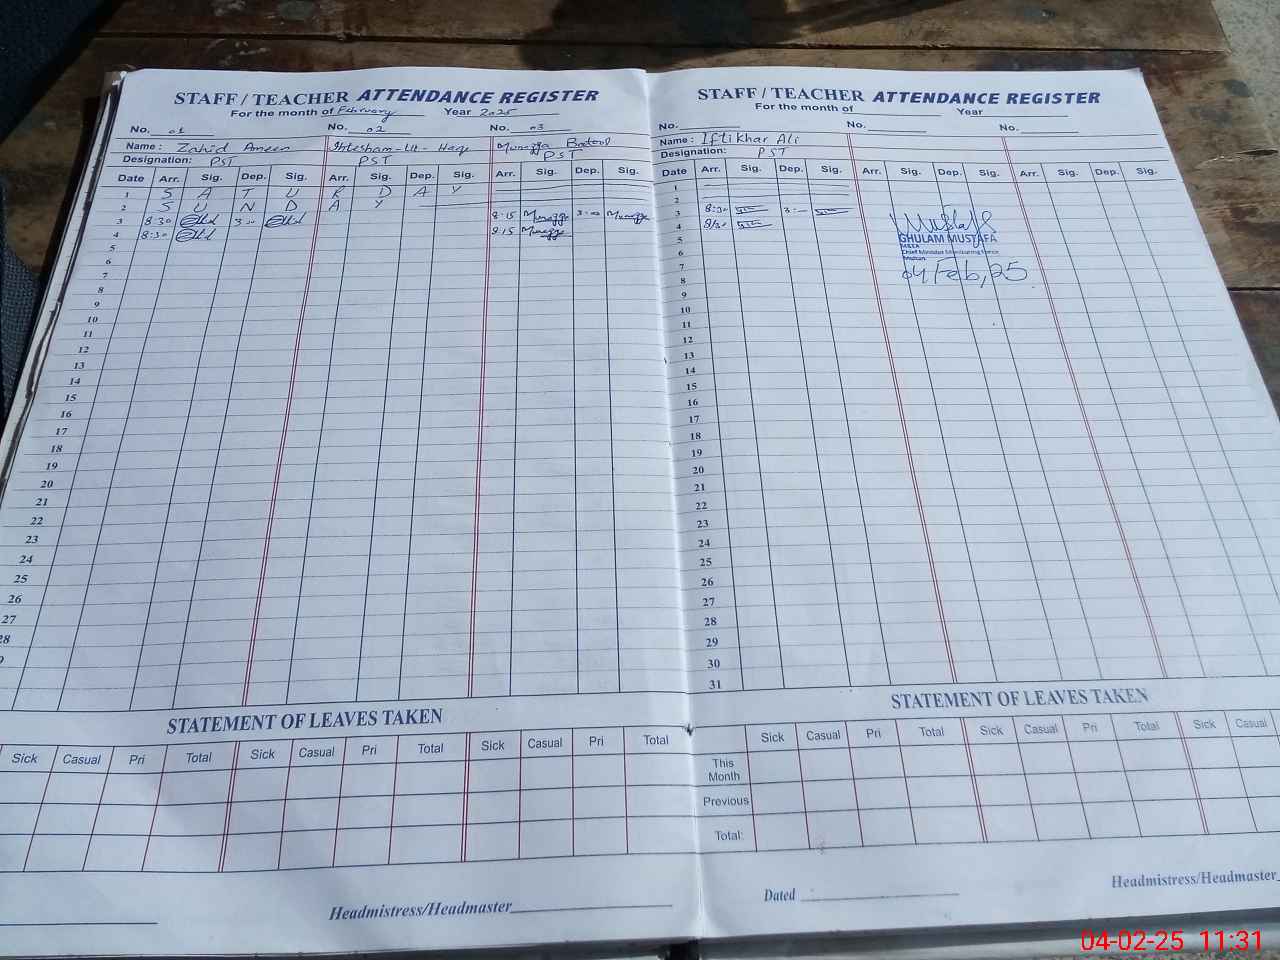 STAFF / TEACHER ATTENDANCE REGISTER
For the month of February Year 2025
No. 01 No. 02 No. 03
Name : Zahid Ameen Ihtesham-Ul-Haq Munazza Batool
Designation: PST PST PST
Date Arr. Sig. Dep. Sig. Arr. Sig. Dep. Sig. Arr. Sig. Dep. Sig.
1 S A T U R D A Y
2 S U N D A Y
3 8:30 3:00 8:15 Munazza 3:00 Munazza
4 8:30 8:15 Munazza
5
6
7
8
9
10
11
12
13
14
15
16
17
18
19
20
21
22
23
24
25
26
27
28
9
STATEMENT OF LEAVES TAKEN
Sick Casual Pri Total Sick Casual Pri Total Sick Casual Pri Total
Headmistress/Headmaster
STAFF / TEACHER ATTENDANCE REGISTER
For the month of Year
No. No. No.
Name : Iftikhar Ali
Designation: PST
Date Arr. Sig. Dep. Sig. Arr. Sig. Dep. Sig. Arr. Sig. Dep. Sig.
1
2
3 8:30 3:00
4 8:30
5
6
7
8
9
10
11
12
13
14
15
16
17
18
19
20
21
22
23
24
25
26
27
28
29
30
31
Mustafa
GHULAM MUSTAFA
MEA
Chief Minister Monitoring Force
Multan
04 Feb, 25
STATEMENT OF LEAVES TAKEN
Sick Casual Pri Total Sick Casual Pri Total Sick Casual
This Month
Previous
Total:
Dated Headmistress/Headmaster
04-02-25 11:31